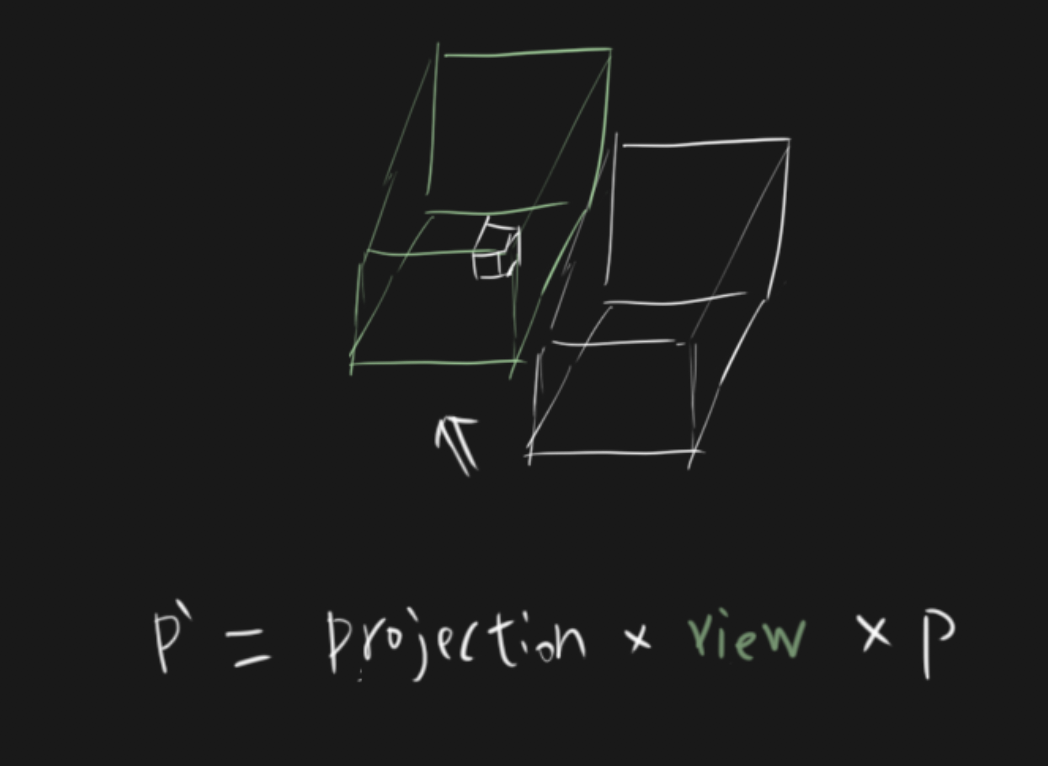 p` = projection × view × p